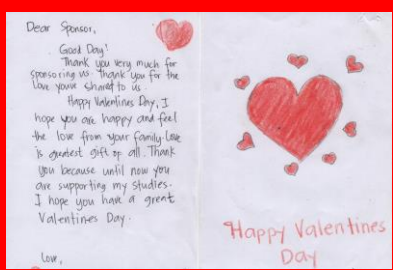 Dear Sponsor,
Good Day!
Thank you very much for
sponsoring us. Thank you for the
love you've shared to us.
Happy Valentines Day, I
hope you are happy and feel
the love from your family. Love
is greatest gift of all. Thank
you because until now you
are supporting my studies.
I hope you have a great
Valentines Day.
Love,
Happy Valentines
Day